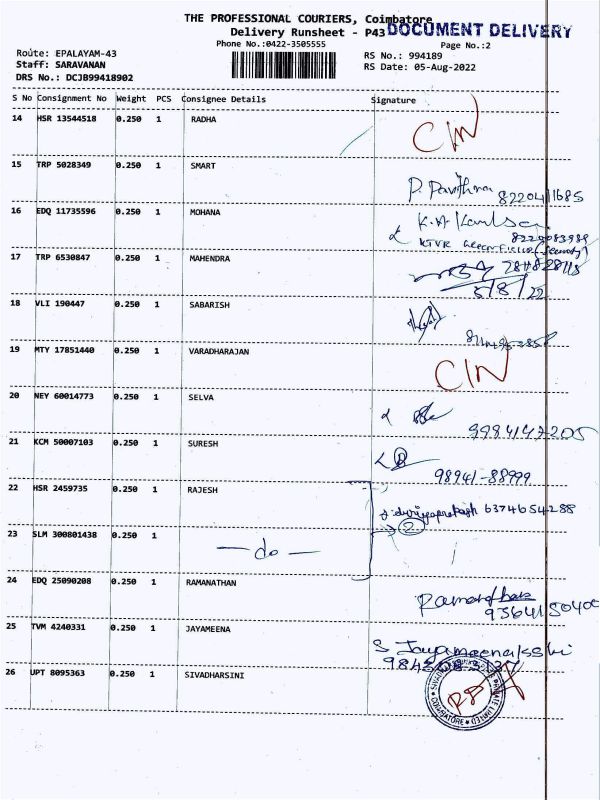 THE PROFESSIONAL COURIERS, Coimbatore
Delivery Runsheet - P43
DOCUMENT DELIVERY
Phone No.:0422-3505555
Page No.:2
Route: EPALAYAM-43
RS No.: 994189
Staff: SARAVANAN
RS Date: 05-Aug-2022
DRS No.: DCJB99418902
S No Consignment No Weight PCS Consignee Details Signature
14 HSR 13544518 0.250 1 RADHA
15 TRP 5028349 0.250 1 SMART
P. Pavithra 8220411685
16 EDQ 11735596 0.250 1 MOHANA
17 TRP 6530847 0.250 1 MAHENDRA
5/8/22
18 VLI 190447 0.250 1 SABARISH
19 MTY 17851440 0.250 1 VARADHARAJAN
20 NEY 60014773 0.250 1 SELVA
9994147205
21 KCM 50007103 0.250 1 SURESH
98941-88999
22 HSR 2459735 0.250 1 RAJESH
6374654288
23 SLM 300801438 0.250 1
— do —
2
24 EDQ 25090208 0.250 1 RAMANATHAN
25 TVM 4240331 0.250 1 JAYAMEENA
S Jayameenakshi
26 UPT 8095363 0.250 1 SIVADHARSINI